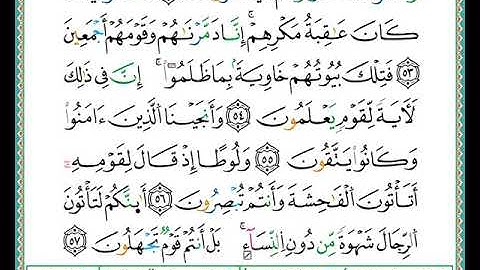 كَانَ عَٰقِبَةُ مَكۡرِهِمۡ إِنَّا دَمَّرۡنَٰهُمۡ وَقَوۡمَهُمۡ أَجۡمَعِينَ
٥٣ فَتِلۡكَ بُيُوتُهُمۡ خَاوِيَةَۢ بِمَا ظَلَمُوٓا۟ إِنَّ فِي ذَٰلِكَ
لَأٓيَةٗ لِّقَوۡمٖ يَعۡلَمُونَ ٥٤ وَأَنجَيۡنَا ٱلَّذِينَ ءَامَنُوا۟
وَكَانُوا۟ يَتَّقُونَ ٥٥ وَلُوطًا إِذۡ قَالَ لِقَوۡمِهِۦٓ
أَتَأۡتُونَ ٱلۡفَٰحِشَةَ وَأَنتُمۡ تُبۡصِرُونَ ٥٦ أَئِنَّكُمۡ لَتَأۡتُونَ
ٱلرِّجَالَ شَهۡوَةٗ مِّن دُونِ ٱلنِّسَآءِۚ بَلۡ أَنتُمۡ قَوۡمٞ تَجۡهَلُونَ ٥٧